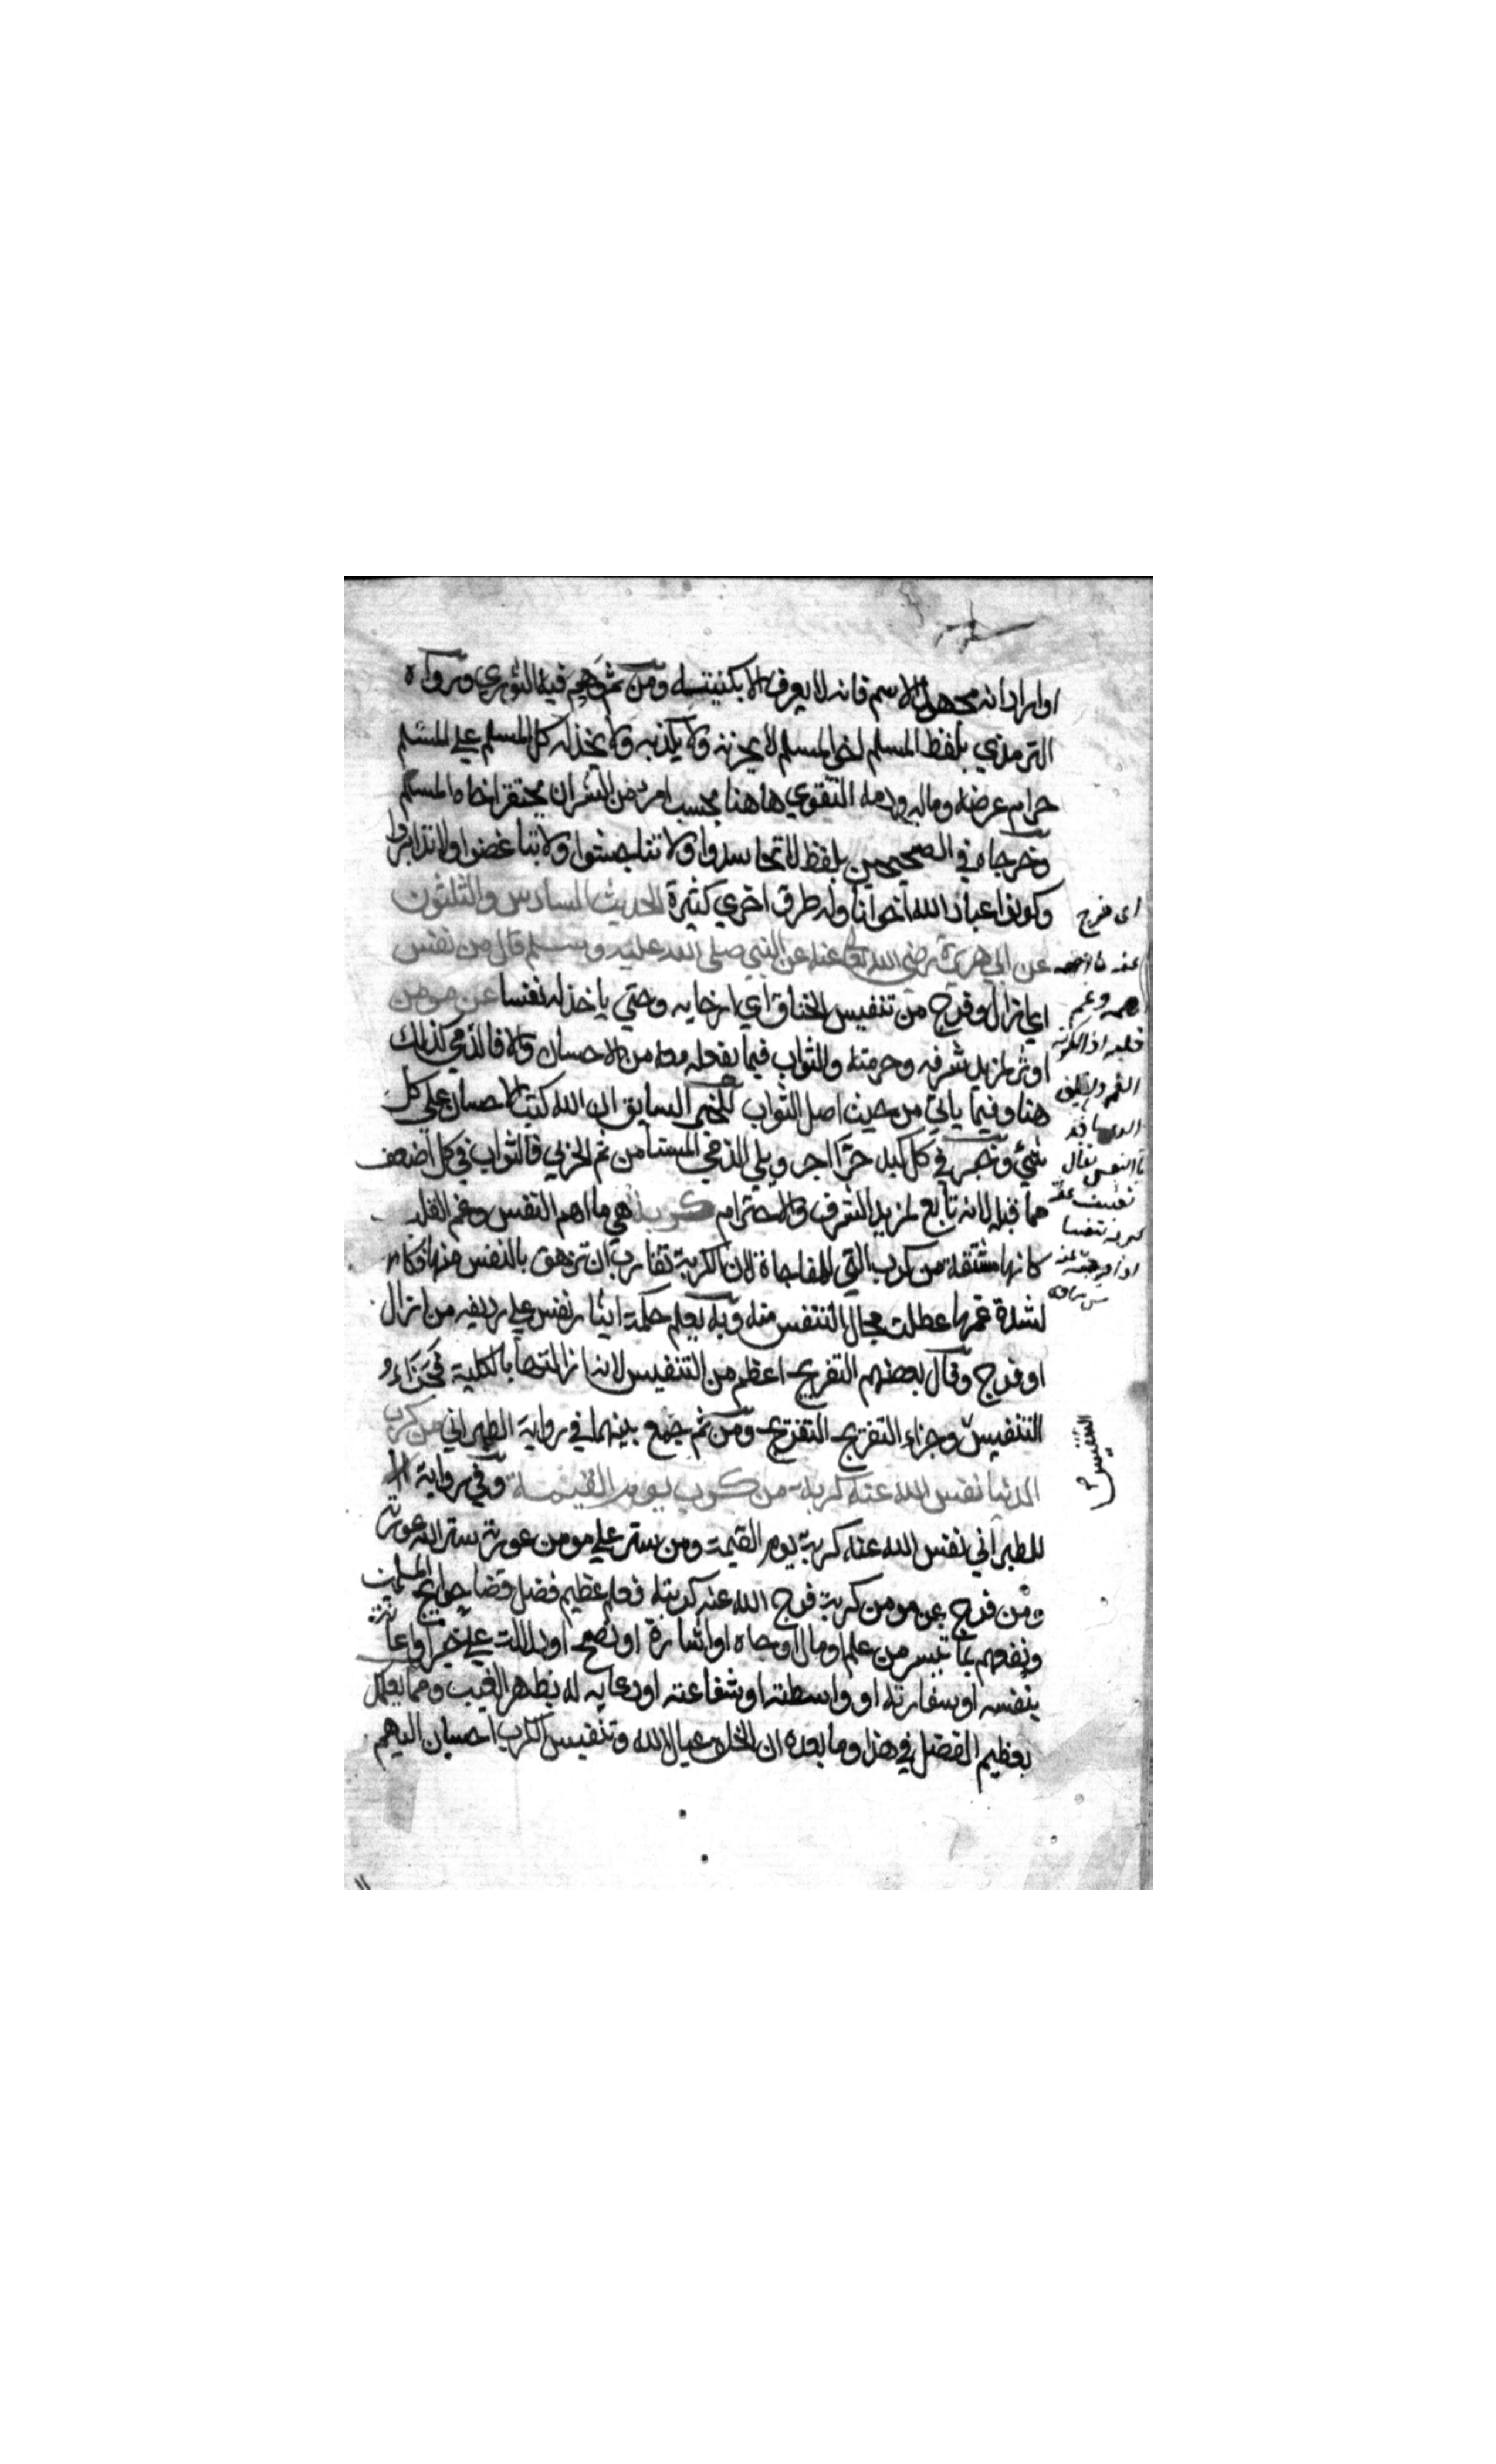 او اراد انه مجهول الاسم فانه لا يعرف الا بكنيته ومن ثم وهم فيه الثوري ورواه
الترمذي بلفظ المسلم اخو المسلم لا يحزنه ولا يكذبه ولا يخذله كل المسلم على المسلم
حرام عرضه وماله ودمه التقوي هاهنا بحسب امرئ من الشر ان يحتقر اخاه المسلم
وخرجاه في الصحيحين بلفظ لا تحاسدوا ولا تناجشوا ولا تباغضوا ولا تدابروا
وكونوا عباد الله اخوانا وله طرق اخري كثيرة الحديث السادس والثلثون
عن ابي هريرة رضي الله تعا عنه عن النبي صلى الله عليه وسلم قال من نفس
اي ازال وفرج من تنفيس الخناق اي ارخايه وحتي ياخذ له نفسا عن مومن
اوثر لمزيد شرفه وحرمته والثواب فيما يفعله معه من الاحسان والا فالذمي كذلك
هنا وفيما ياتي من حيث اصل الثواب للخبر السابق ان الله كتب الاحسان على كل
شيء وخبر في كل كبد حرا اجر ويلي الذمي المستامن ثم الحربي فالثواب في كل اضعف
مما قبله لانه تابع لمزيد الشرف والاحترام كربة هي ما اهم النفس وغم القلب
كانها مشتقة من كرب التي للمفاجاة لان الكربة تقارب ان تزهق بالنفس منها فكان
لشدة غمها عطلت مجال التنفس منه وبه يعلم حكمة ايثار نفس على رديفه من ازال
او فرج وقال بعضهم التفريج اعظم من التنفيس لانه ازالتها بالكلية فجزاء
التنفيس وجزاء التفريج التفريج ومن ثم جمع بينهما في رواية الطبراني من كرب
الدنيا نفس الله عنه كربة من كرب يوم القيمة وفي رواية
للطبراني نفس الله عنه كربة يوم القيمة ومن ستر على مومن عورته ستر الله عورته
ومن فرج عن مومن كربة فرج الله عنه كربته فعلم عظيم فضل قضا حوايج المسلمين
ونفعهم بما تيسر من علم او مال او جاه او اشارة او نصح او دلالة على خير او اعانة
بنفسه او سفارته او واسطته او شفاعته او دعايه له بظهر الغيب ومما يعلمك
بعظيم الفضل في هذا وما بعده ان الخلق عيال الله وتنفيس الكرب احسان اليهم
اى فرج
همه وغم
قلبه
تنفيسا
التنفيس